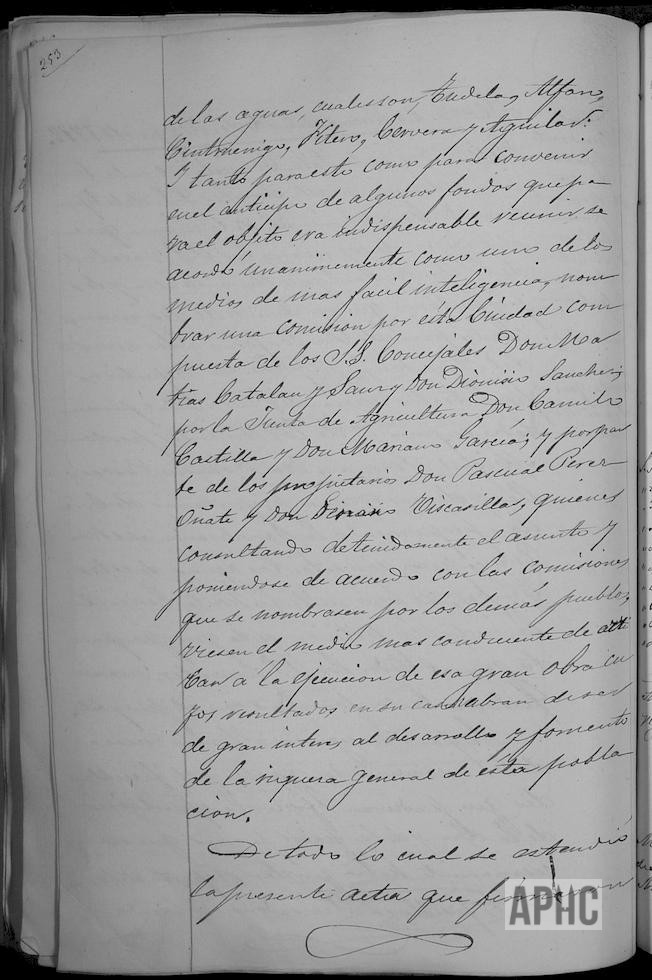 253
de las aguas, cuales son, Tudela, Alfaro,
Cintruenigo, Fitero, Cervera y Aguilar:
I tanto para esto como para convenir
en el anticipo de algunos fondos que pa
ra el objeto era indispensable reunir se
acordó unanimemente como uno de los
medios de mas facil inteligencia, nom
brar una comision por ésta Ciudad com
puesta de los S.S. Concejales Don Ma
tias Catalan y Saur y Don Dionisio Sanchez;
por la Junta de Agricultura Don Camilo
Castilla y Don Mariano Garcia; y por par
te de los propietarios Don Pascual Perez
Oñate y Don Viscasillas, quienes
consultando detenidamente el asunto y
poniendose de acuerdo con las comisiones
que se nombrasen por los demás pueblos,
viesen el medio mas conducente de
á la ejecucion de esa gran obra cu
yos resultados en su caso abran de ser
de gran interes al desarrollo y fomento
de la riquera general de ésta pobla
cion.
De todo lo cual se estendió
la presente acta que firmaron
APHC